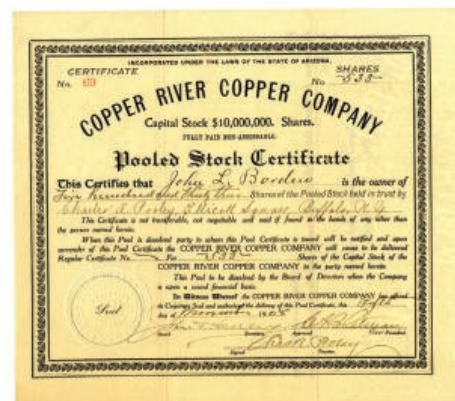 INCORPORATED UNDER THE LAWS OF THE STATE OF ARIZONA.
CERTIFICATE
SHARES
No.
No 533
COPPER RIVER COPPER COMPANY
Capital Stock $10,000,000. Shares.
FULLY PAID NON-ASSESSABLE.
Pooled Stock Certificate
This Certifies that John L. Borden is the owner of
Five hundred and Thirty three Shares of the Pooled Stock held in trust by
Charles A. Pooley, Ellicott Square, Buffalo, N.Y.
This Certificate is not transferable, not negotiable and void if found in the hands of any other than
the person named herein.
When this Pool is dissolved party to whom this Pool Certificate is issued will be notified and upon
surrender of this Pool Certificate the COPPER RIVER COPPER COMPANY will cause to be delivered
Regular Certificate No. For 533 Shares of the Capital Stock of the
COPPER RIVER COPPER COMPANY to the party named herein.
This Pool to be dissolved by the Board of Directors when the Company
is upon a sound financial basis.
In Witness Whereof the COPPER RIVER COPPER COMPANY has affixed
its Corporate Seal and authorized the delivery of this Pool Certificate, this
day of
Seal
Secretary.
Approved
Vice President
Signed
Trustee.